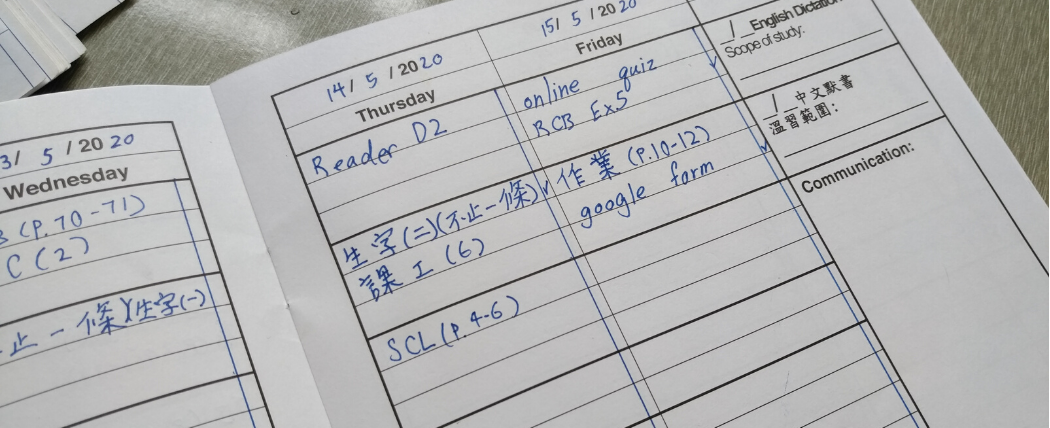 3/ 5 / 20 20
Wednesday
(P.70-71)
C (2)
止一條)(生字(一)
14/ 5 / 20 20
Thursday
Reader D2
生字(二)(不止一條)
課工(6)
SCL (P.4-6)
15/ 5 / 20 20
Friday
online quiz
RCB Ex5
作業 (P.10-12)
google form
/ English Dictation
Scope of study:
/ 中文默書
溫習範圍:
Communication: